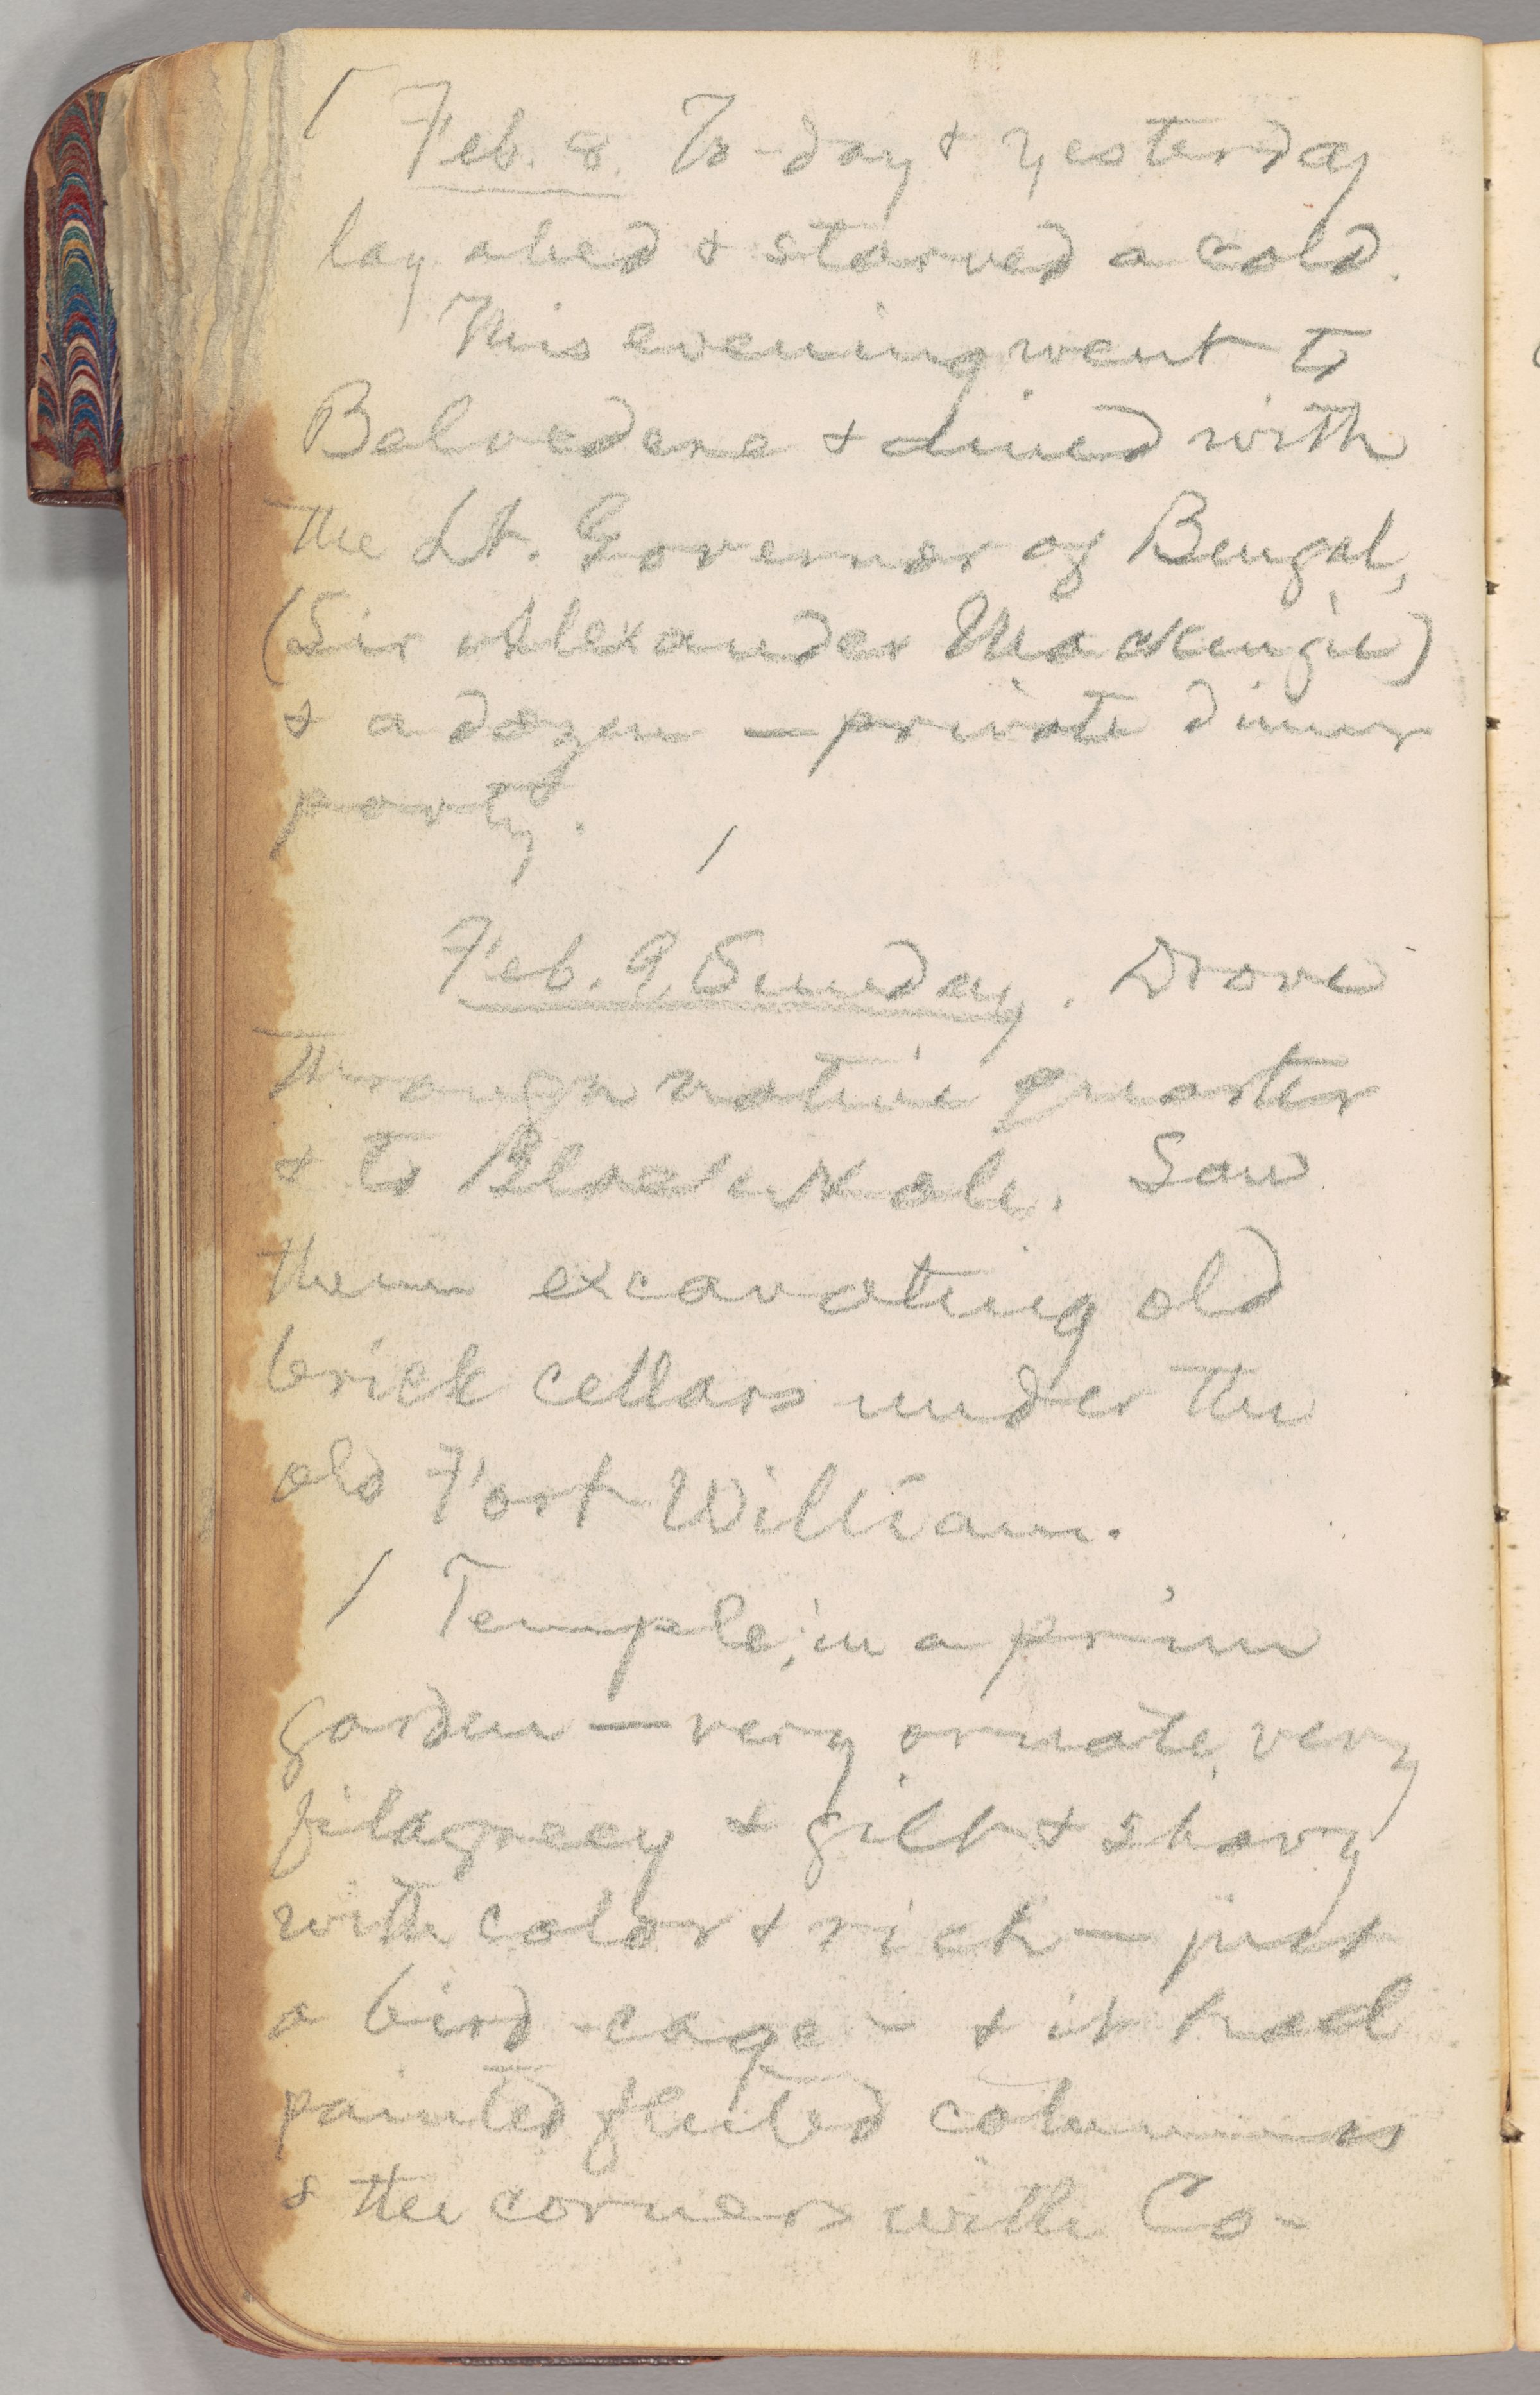 Feb. 8. To-day & yesterday
lay abed & starved a cold.
This evening went to
Belvedere & dined with
the Lt. Governor of Bengal,
(Sir Alexander Mackenzie)
& a dozen — private dinner
party.
Feb. 9, Sunday. Drove
through native quarter
& to Black Hole. Saw
them excavating old
brick cellars under the
old Fort William.
Temple, in a prim
garden — very ornate, very
filagreey & gilt & showy
with color & rich — just
a bird-cage — & it had
painted fluted columns
& the corners with Co-